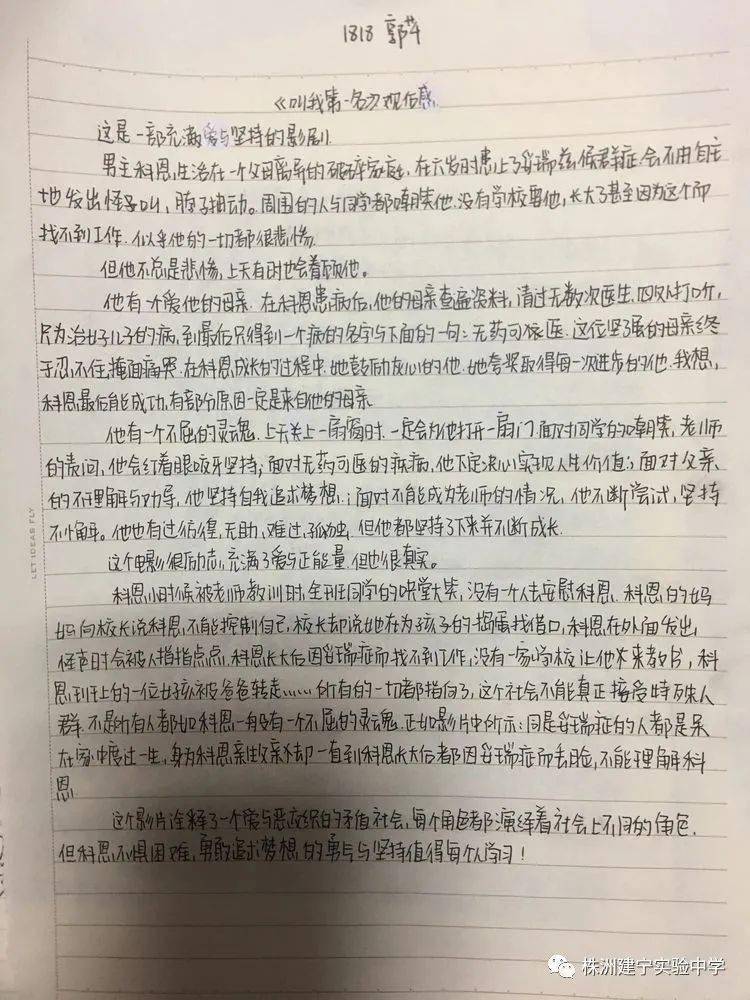 1818 郭芊
《叫我第一名》观后感
这是一部充满爱与坚持的影剧.
男主科恩,生活在一个父母离异的破碎家庭,在六岁时患上了妥瑞兹候群症.会不由自主
地发出怪叫,脖子抽动。周围的人与同学都嘲笑他.没有学校要他,长大了甚至因为这个而
找不到工作.似乎他的一切都很悲惨.
但他不总是悲惨,上天有时也会眷顾他。
他有一个爱他的母亲.在科恩患病后,他的母亲查遍资料,请过无数次医生.四处打听,
只为治好儿子的病,到最后只得到一个病的名字与下面的一句:无药可医.这位坚强的母亲终
于忍不住,掩面痛哭.在科恩成长的过程中.她鼓励灰心的他.她夸奖取得每一次进步的他.我想,
科恩最后能成功,有部分原因一定是来自他的母亲.
他有一个不屈的灵魂.上天关上一扇窗时.一定会为他打开一扇门.面对同学的嘲笑,老师
的责问,他会红着眼咬牙坚持;面对无药可医的疾病,他下定决心实现人生价值;面对父亲
的不理解与劝导,他坚持自我追求梦想;面对不能成为老师的情况,他不断尝试,坚持
不懈。他也有过彷徨,无助,难过,孤独.但他都坚持了下来并不断成长.
这个电影很励志,充满了爱与正能量.但也很真实。
科恩小时候被老师教训时,全班同学的哄堂大笑,没有一个人去安慰科恩.科恩的妈
妈向校长说科恩不能控制自己,校长却说她在为孩子的捣蛋找借口,科恩在外面发出
怪声时会被人指指点点,科恩长大后因妥瑞症而找不到工作,没有一家学校让他来教书,科
恩班上的一位女孩被爸爸转走……所有的一切都指向了,这个社会不能真正接受特殊人
群.不是所有人都如科恩一般有一个不屈的灵魂.正如影片中所示:同是妥瑞症的人都是呆
在家中度过一生,身为科恩亲生父亲却一直到科恩长大后都因妥瑞症而丢脸,不能理解科
恩.
这个影片诠释了一个爱与恶交织的矛盾社会,每个角色都演绎着社会上不同的角色.
但科恩不惧困难,勇敢追求梦想的勇气与坚持值得每个人学习!
LET IDEAS FLY
株洲建宁实验中学